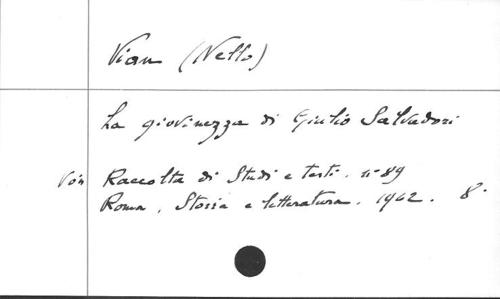 Vian (Nello)
La giovinezza di Giulio Salvadori
Voir Raccolta di Studi e testi. n° 89
Roma, Storia e letteratura. 1962. 8°